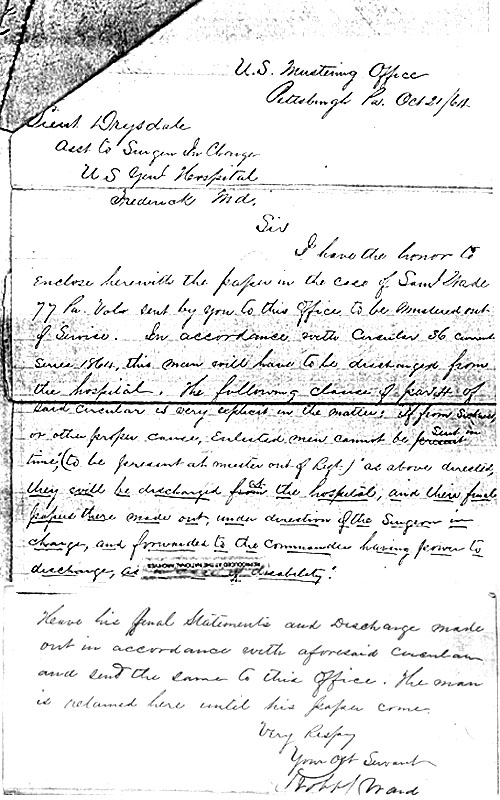 U.S. Mustering Office
Pittsburgh Pa. Oct 21/64.
Lieut Drysdale
Asst to Surgeon In Charge
U S Genl Hospital
Frederick Md.
Sir
I have the honor to
enclose herewith the paper in the case of Saml Wade
77 Pa. Vols sent by you to this Office to be Mustered out
of Service. In accordance with Circular 36 current
series 1864, this man will have to be discharged from
the hospital. The following clause of par
said circular is very explicit in the matter; if from Sickness
or other proper cause, Enlisted men cannot be Sent in
time, (to be present at muster out of Regt.) "as above directed
they will be discharged from the hospital, and there final
papers there made out, under direction of the Surgeon in
charge, and forwarded to the Commander having power to
discharge, as of disability".
REPRODUCED AT THE NATIONAL ARCHIVES
Have his final Statements and Discharge made
out in accordance with aforesaid circular
and send the same to this Office. The man
is retained here until his paper come
Very Respy
Your Obt Servant
Ward